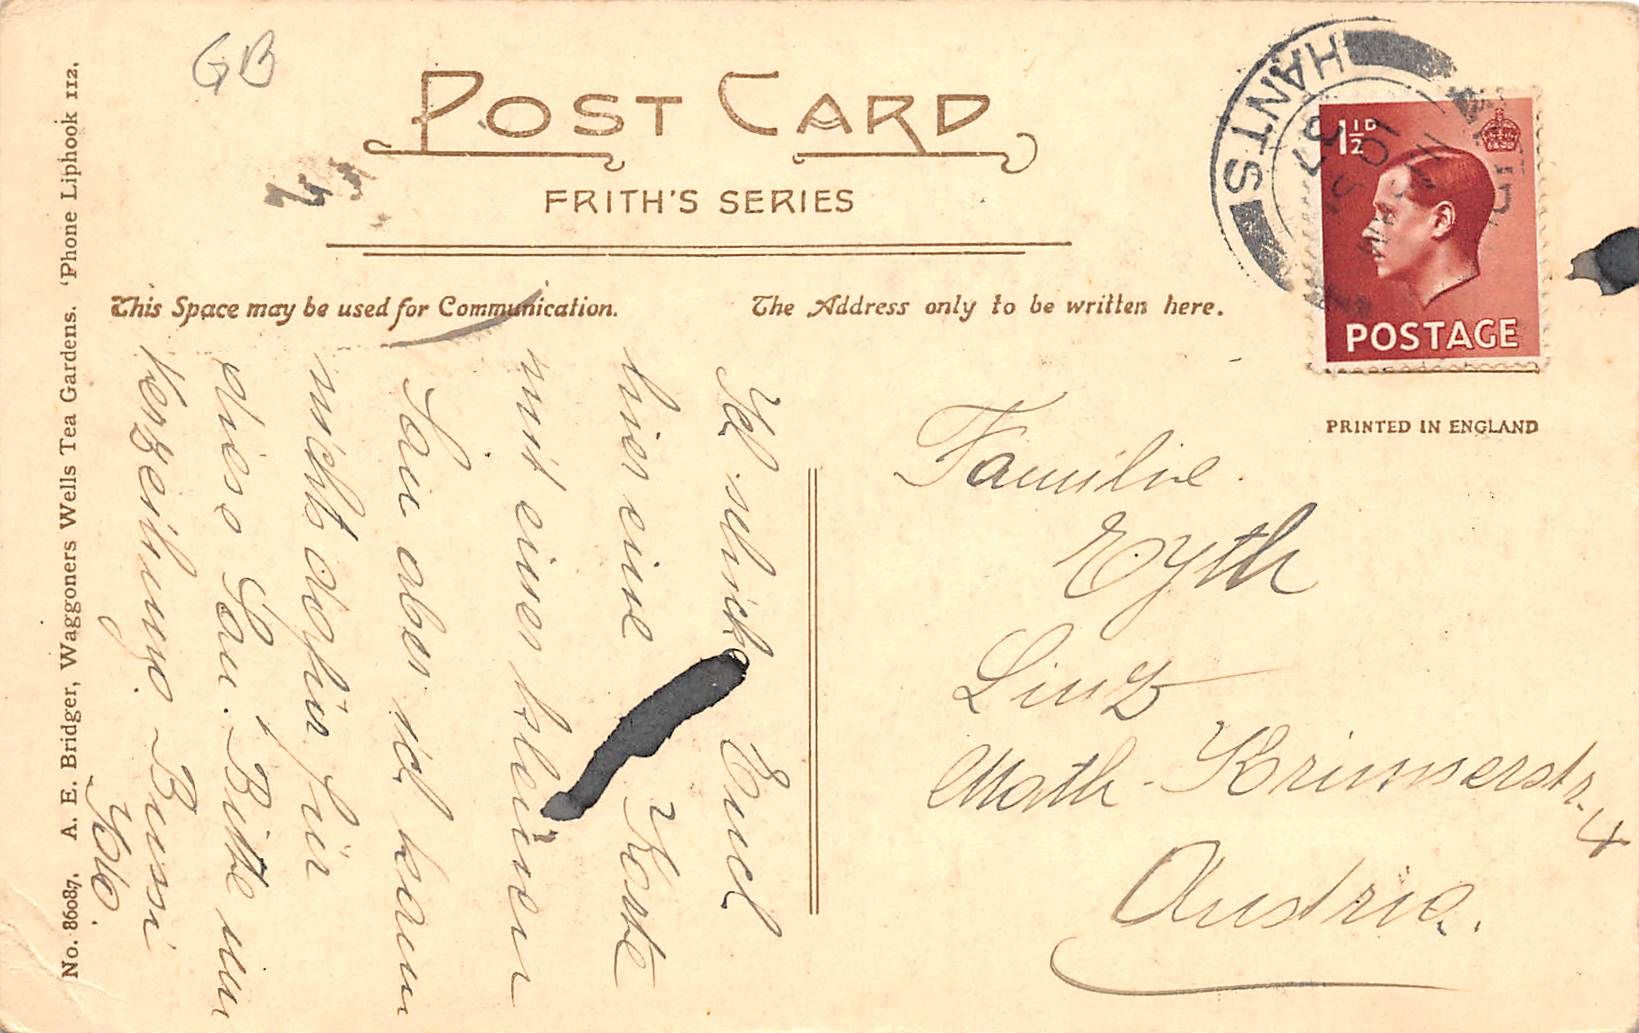 GB
POST CARD
FRITH'S SERIES
This Space may be used for Communication.
The Address only to be written here.
HANTS
10
37
1½D
POSTAGE
PRINTED IN ENGLAND
No. 86087. A. E. Bridger, Waggoners Wells Tea Gardens. 'Phone Liphook 112.
Ich schicke Euch
hier eine Karte
mit einer kleinen
Sau aber ich kann
nicht dafür für
diese Sau. Bitte um
Verzeihung. Bussi
Familie
Eyth
Linz
Math-Krinnerstr. 4
Austria.